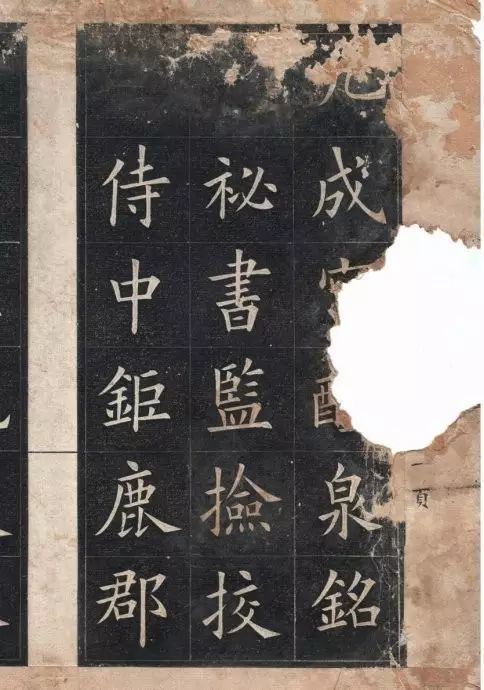 九成宮醴泉銘
祕書監撿挍
侍中鉅鹿郡
一頁